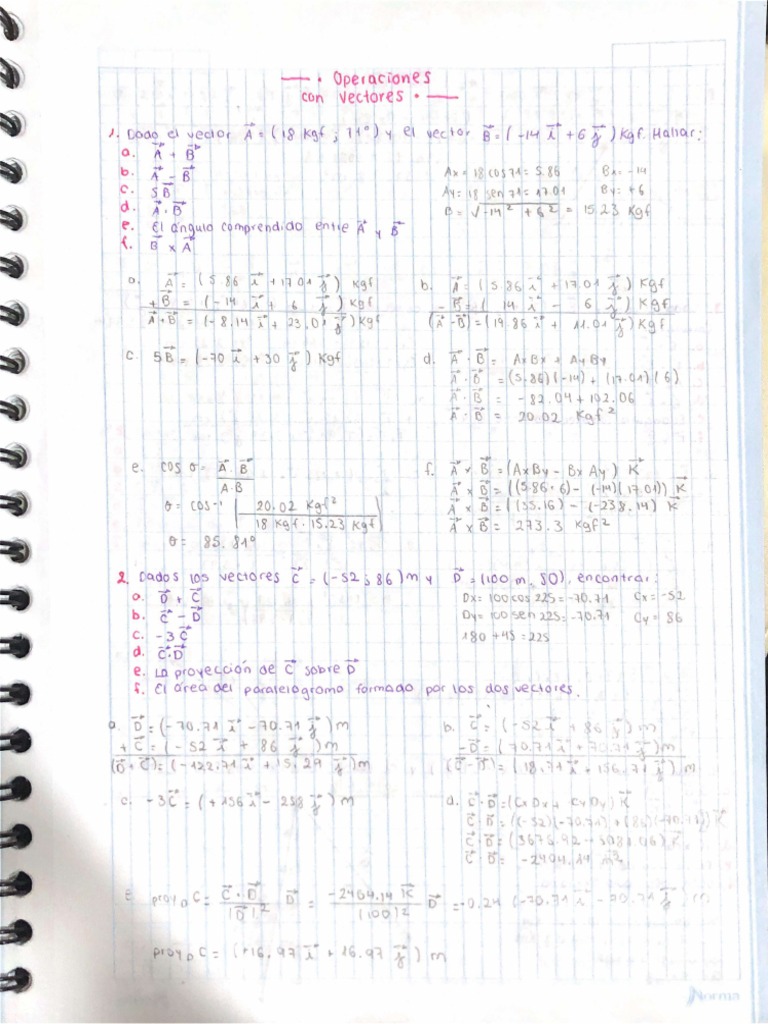 Operaciones
con vectores.
1. Dado el vector A = (18 Kgf ; 71°) y el vector B = (-14 i + 6 j) Kgf. Hallar:
a. A + B
b. A - B
c. 5B
d. A · B
e. El angulo comprendido entre A y B
f. B x A
Ax = 18 cos 71 = 5.86 Bx = -14
Ay = 18 sen 71 = 17.01 By = +6
B = √-14² + 6² = 15.23 Kgf
a. A = (5.86 i + 17.01 j) Kgf
+ B = (-14 i + 6 j) Kgf
A + B = (-8.14 i + 23.01 j) Kgf
b. A = (5.86 i + 17.01 j) Kgf
- B = ( 14 i - 6 j) Kgf
(A - B) = (19.86 i + 11.01 j) Kgf
c. 5B = (-70 i + 30 j) Kgf
d. A · B = AxBx + AyBy
A · B = (5.86)(-14) + (17.01)(6)
A · B = -82.04 + 102.06
A · B = 20.02 Kgf²
e. cos θ = A · B / A·B
θ = cos⁻¹ (20.02 Kgf² / 18 Kgf · 15.23 Kgf)
θ = 85.81°
f. A x B = (AxBy - BxAy) K
A x B = ((5.86·6) - (-14)(17.01)) K
A x B = ((35.16) - (-238.14) K
A x B = 273.3 Kgf²
2. Dados los vectores C = (-52 ; 86) m y D = (100 m, SO), encontrar:
a. D + C
b. C - D
c. -3C
d. C·D
e. La proyección de C sobre D
f. El área del paralelogramo formado por los dos vectores.
Dx = 100 cos 225 = -70.71 Cx = -52
Dy = 100 sen 225 = -70.71 Cy = 86
180 + 45 = 225
a. D = (-70.71 i - 70.71 j) m
+ C = (-52 i + 86 j) m
(D + C) = (-122.71 i + 15.29 j) m
b. C = (-52 i + 86 j) m
-D = (70.71 i + 70.71 j) m
(C - D) = (18.71 i + 156.71 j) m
c. -3C = (+156 i - 258 j) m
d. C·D = (CxDx + CyDy) K
C·D = ((-52)(-70.71) + (86)(-70.71)) K
C·D = (3676.92 - 6081.06) K
C·D = -2404.14 m²
E proy D C = C·D / |D|² D = -2404.14 K / (100)² D = -0.24 (-70.71 i - 70.71 j) m
proy D C = (+16.97 i + 16.97 j) m
Norma